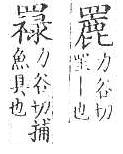 䍡
力谷切
罜丨也
力谷切捕
魚具也